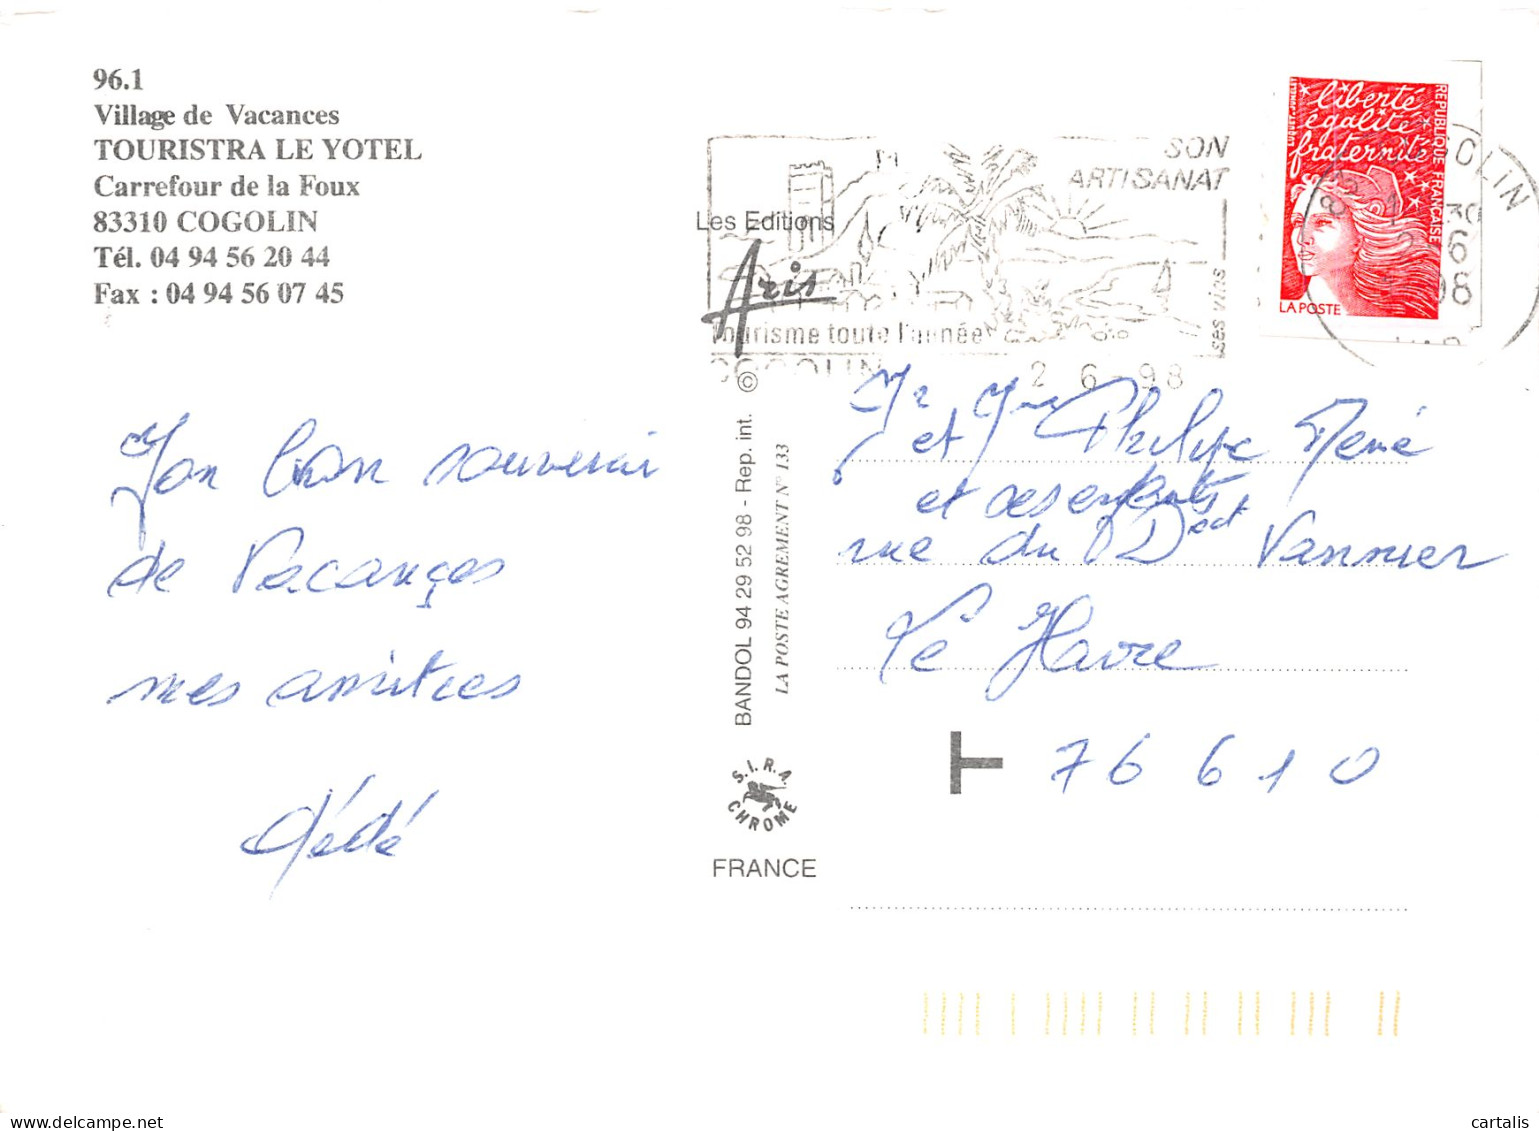 96.1
Village de Vacances
TOURISTRA LE YOTEL
Carrefour de la Foux
83310 COGOLIN
Tél. 04 94 56 20 44
Fax : 04 94 56 07 45
SON
ARTISANAT
Les Editions
Aris
Tourisme toute l'année
ses vins
COGOLIN
2 6 - 98
liberté
égalité
fraternité
REPUBLIQUE FRANÇAISE
LA POSTE
bon souvenir
de Vacançes
mes amitiés
dédé
BANDOL 94 29 52 98 - Rep. int. ©
LA POSTE AGREMENT N° 133
S.I.R.A.
CHROME
FRANCE
Mr
et Mme Philippe René
et ses enfants
rue du Vannier
Le Havre
T 76 610
cartalis